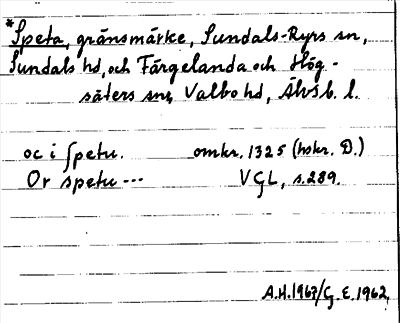 *Speta, gränsmärke, Sundals-Ryrs sn,
Sundals hd, och Färgelanda och Hög-
säters snr, Valbo hd, Älvsb. l.
oc i spetu. omkr. 1325 (hskr. D.)
Or spetu --- VGL, s. 289.
A.H. 1967/G.E. 1962.